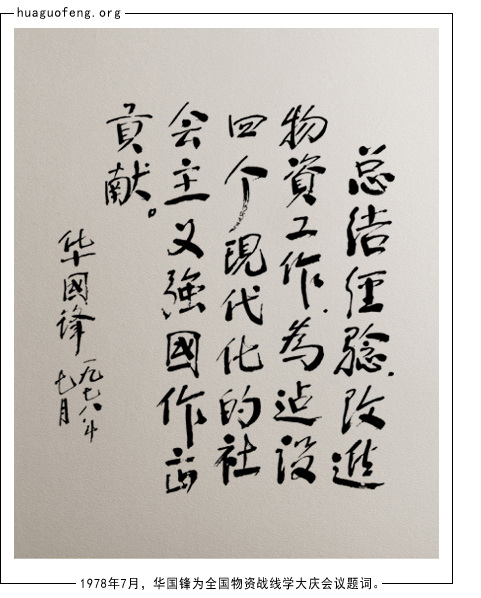 huaguofeng.org
总结经驗.改進
物資工作.為迠設
四个現代化的社
会主义強國作出
貢献。
华國锋
一九七八年
七月
1978年7月，华国锋为全国物资战线学大庆会议题词。